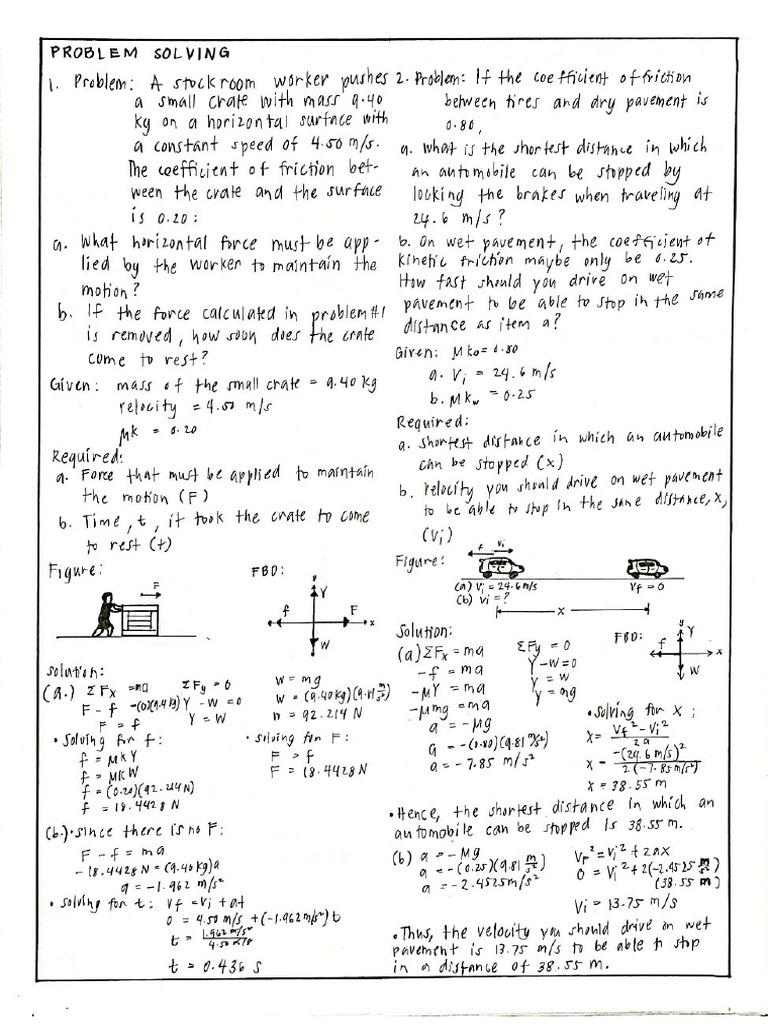 PROBLEM SOLVING
1. Problem: A stockroom worker pushes
a small crate with mass 9.40
kg on a horizontal surface with
a constant speed of 4.50 m/s.
The coefficient of friction bet-
ween the crate and the surface
is 0.20:
a. What horizontal force must be app-
lied by the worker to maintain the
motion?
b. If the force calculated in problem #1
is removed, how soon does the crate
come to rest?
Given: mass of the small crate = 9.40 kg
velocity = 4.50 m/s
μk = 0.20
Required:
a. Force that must be applied to maintain
the motion (F)
b. Time, t, it took the crate to come
to rest (t)
Figure: FBD:
F
Y
f F x
W
Solution:
(a.) ΣFx = ma ΣFy = 0 W = mg
F - f = (0)(9.4kg) Y - W = 0 W = (9.40kg)(9.81 m/s²)
F = f Y = W W = 92.214 N
• Solving for f: • Solving for F:
f = MKY F = f
f = MKW F = 18.4428 N
f = (0.20)(92.214N)
f = 18.4428 N
(b.) • Since there is no F:
F - f = ma
-18.4428 N = (9.40kg)a
a = -1.962 m/s²
• Solving for t: Vf = Vi + at
0 = 4.50 m/s + (-1.962 m/s²) t
t = 1.962 m/s² / 4.50 m/s
t = 0.436 s
2. Problem: If the coefficient of friction
between tires and dry pavement is
0.80,
a. What is the shortest distance in which
an automobile can be stopped by
locking the brakes when traveling at
24.6 m/s?
b. On wet pavement, the coefficient of
kinetic friction maybe only be 0.25.
How fast should you drive on wet
pavement to be able to stop in the same
distance as item a?
Given: Mko = 0.80
a. Vi = 24.6 m/s
b. Mkw = 0.25
Required:
a. shortest distance in which an automobile
can be stopped (x)
b. velocity you should drive on wet pavement
to be able to stop in the same distance, x,
(Vi)
Figure:
f Vi
(a) Vi = 24.6 m/s Vf = 0
(b) Vi = ?
x
Solution: FBD:
Y
f x
W
(a) ΣFx = ma ΣFy = 0
-f = ma Y - W = 0
-μY = ma Y = W
-μmg = ma Y = mg
a = -μg
a = -(0.80)(9.81 m/s²)
a = -7.85 m/s²
• Solving for x:
x = Vf² - Vi² / 2a
x = -(24.6 m/s)² / 2(-7.85 m/s²)
x = 38.55 m
• Hence, the shortest distance in which an
automobile can be stopped is 38.55 m.
(b) a = -Mg Vf² = Vi² + 2ax
a = -(0.25)(9.81 m/s²) 0 = Vi² + 2(-2.4525 m/s²)
a = -2.4525 m/s² (38.55 m)
Vi = 13.75 m/s
• Thus, the velocity you should drive on wet
pavement is 13.75 m/s to be able to stop
in a distance of 38.55 m.